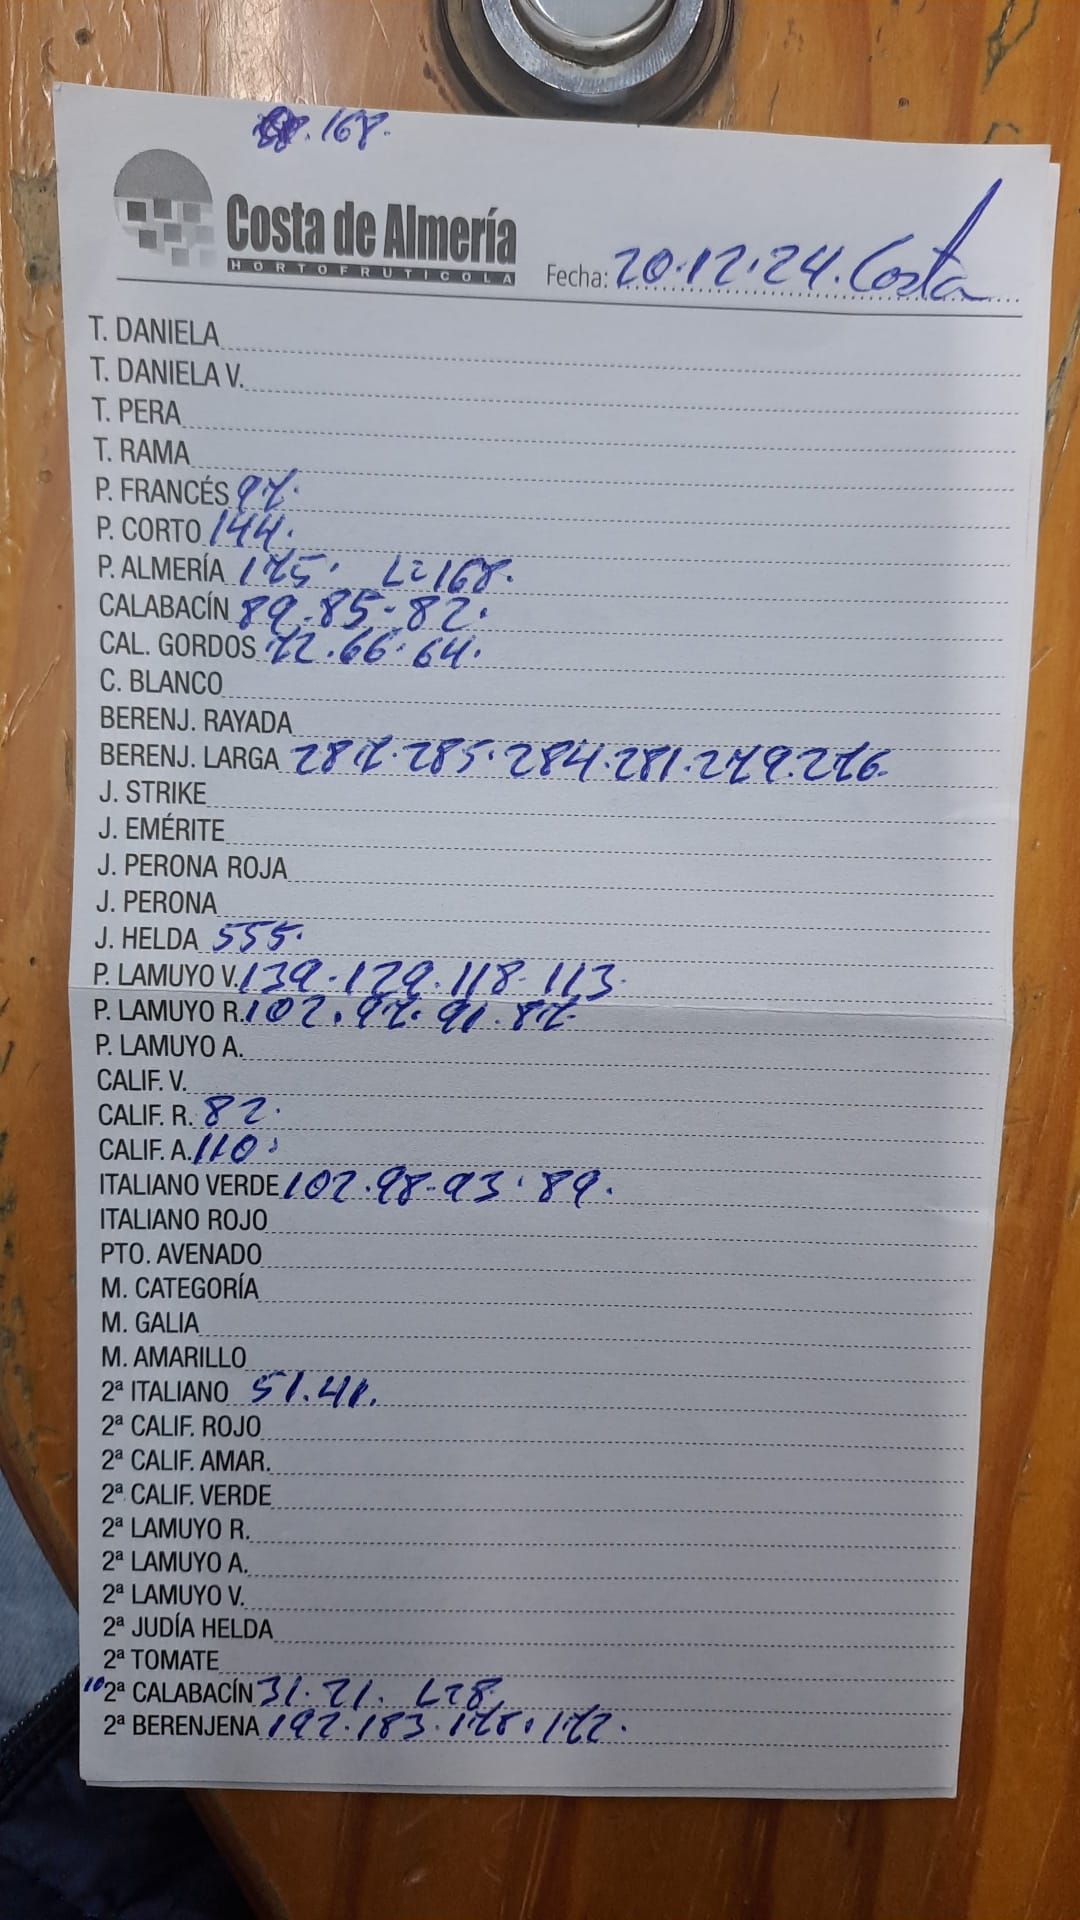 .168.
Costa de Almería
HORTOFRUTICOLA
Fecha: 20.12.24. Costa
T. DANIELA
T. DANIELA V.
T. PERA
T. RAMA
P. FRANCÉS 97.
P. CORTO 144.
P. ALMERÍA 175. L=168.
CALABACÍN 89.85-82.
CAL. GORDOS 72.66.64.
C. BLANCO
BERENJ. RAYADA
BERENJ. LARGA 287.285.284.281.279.276.
J. STRIKE
J. EMÉRITE
J. PERONA ROJA
J. PERONA
J. HELDA 555.
P. LAMUYO V. 139.129.118.113.
P. LAMUYO R. 102.97.91.87.
P. LAMUYO A.
CALIF. V.
CALIF. R. 82.
CALIF. A. 110.
ITALIANO VERDE 102.98.93.89.
ITALIANO ROJO
PTO. AVENADO
M. CATEGORÍA
M. GALIA
M. AMARILLO
2ª ITALIANO 51.41.
2ª CALIF. ROJO
2ª CALIF. AMAR.
2ª CALIF. VERDE
2ª LAMUYO R.
2ª LAMUYO A.
2ª LAMUYO V.
2ª JUDÍA HELDA
2ª TOMATE
10 2ª CALABACÍN 31.21. L=8.
2ª BERENJENA 192.183.178.172.